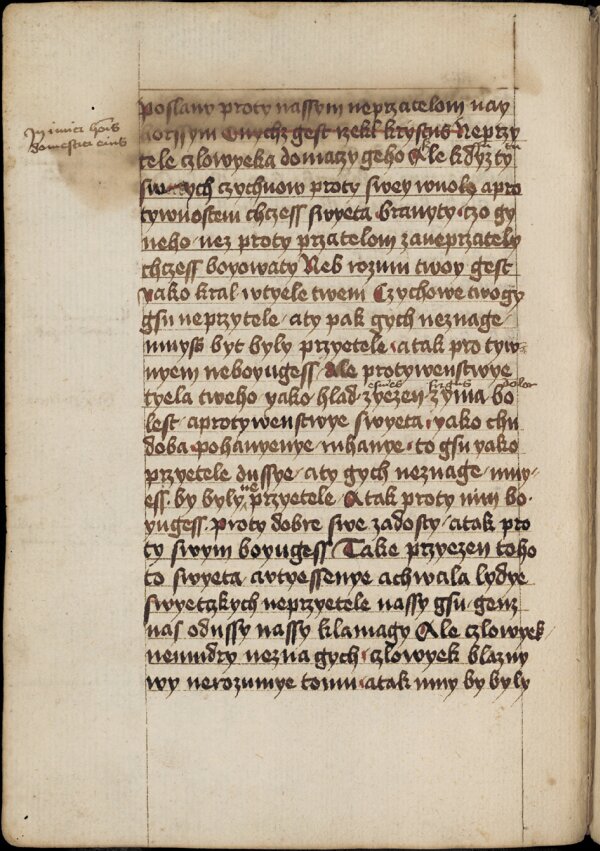 poslany proty nassym neprzatelom nay
horssym Onychz gest rzekl krystus Neprzy
In imici hois
domestici eius
tele czlowyeka domaczy geho Ale kdyz ty
sych czychnow proty swey wuoly a pro
tywnostem chczess swyeta branyty czo gy
neho nez proty przatelom zaneprzately
chczess boyowaty Neb rozum twoy gest
yako kral wtyele twem Czychowe twogy
gsu neprzytele aty pak gych neznage
mnyss byt byly przyetele a tak pro tyw
nyem neboyugess Ale protywenstwye
esuries frigus dolor
tyela tweho yako hlad zyezen zyma bo
lest a protywenstwye swyeta yako chu
doba pohanyenye ruhanye to gsu yako
przyetele dussye aty gych neznage mny
ess by byly neprzyetele A tak proty nim bo
yugess proty dobre swe zadosty a tak pro
ty swym boyugess Take przyezen toho
to swyeta a vtyessenye a chwala lydye
swyetzkych neprzyetele nassy gsu genz
nas o dussy nassy klamagy Ale czlowyek
nemudry nezna gych czlowyek blazny
wy nerozumye tomu a tak mny by byly